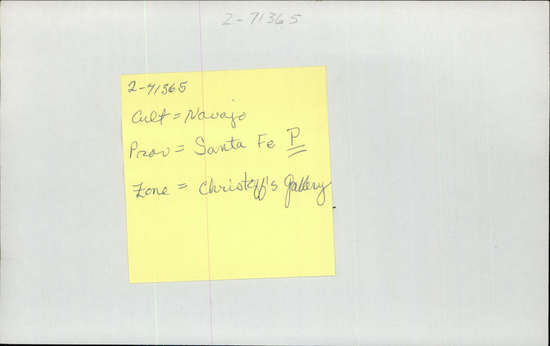 2-71365
2-71365
Cult = Navajo
Prov = Santa Fe P
Zone = Christoff's Gallery